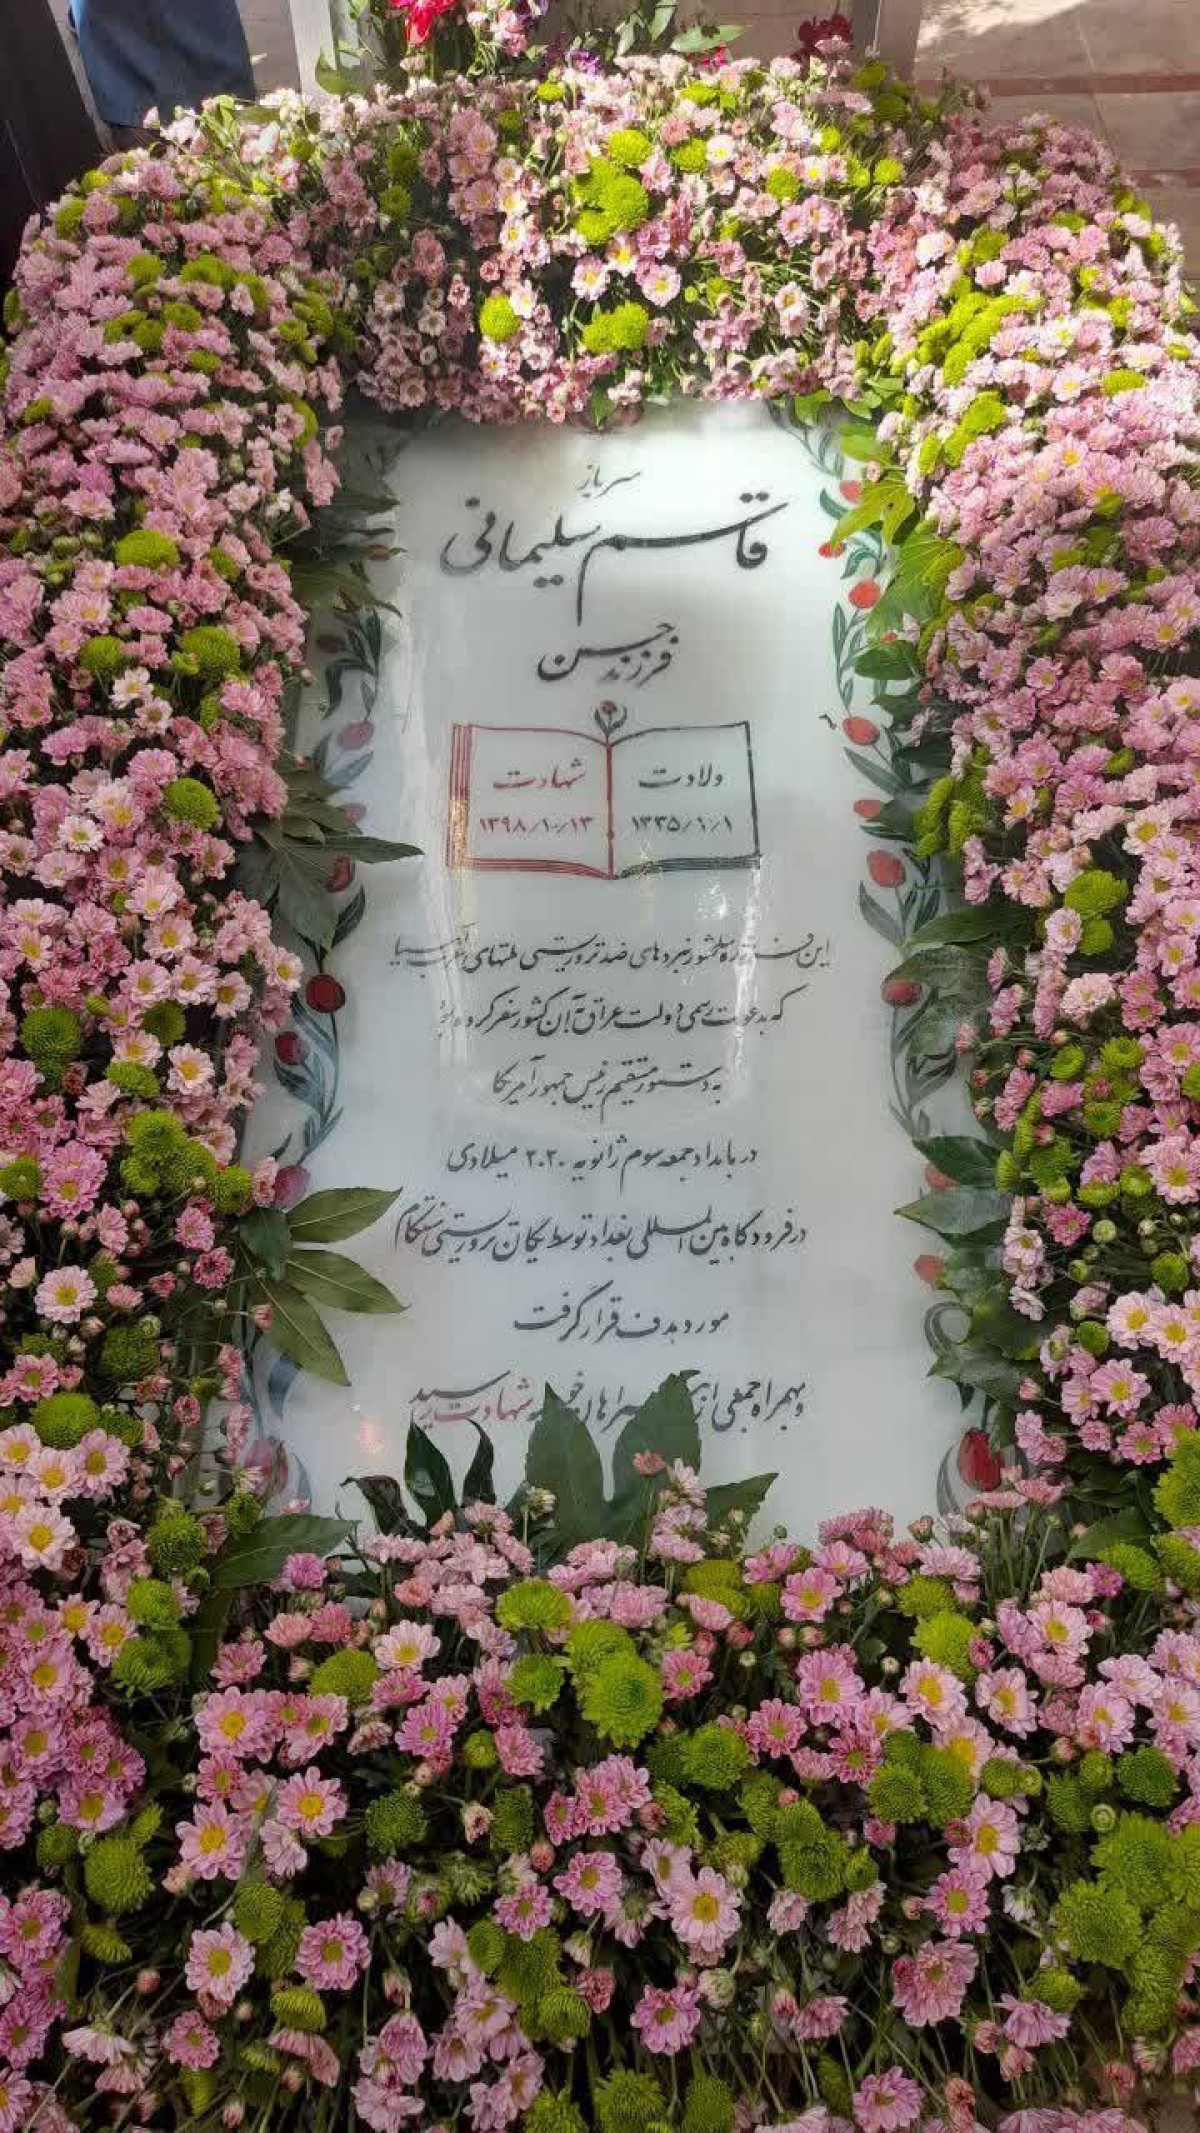 سرباز
قاسم سلیمانی
فرزند حسن
ولادت
۱۳۳۵/۱/۱
شهادت
۱۳۹۸/۱۰/۱۳
این فرمانده سلحشور نبردهای ضد تروریستی ملتهای غرب آسیا
که به دعوت رسمی دولت عراق به آن کشور سفر کرده بود
به دستور مستقیم رئیس جمهور آمریکا
در بامداد جمعه سوم ژانویه ۲۰۲۰ میلادی
در فرودگاه بین المللی بغداد توسط یگان تروریستی سنتکام
مورد هدف قرار گرفت
و بهمراه جمعی از به شهادت رسید